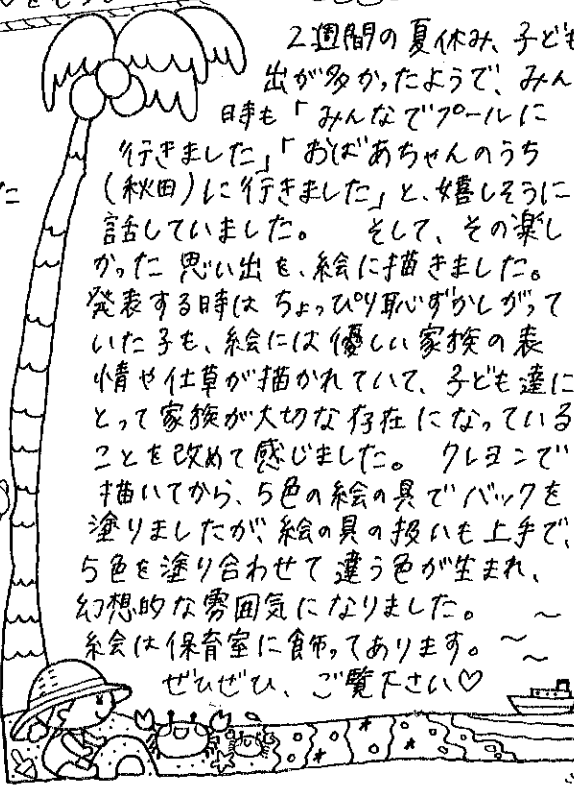 2週間の夏休み、子ども
出が多かったようで、みん
時も「みんなでプールに
行きました」「おばあちゃんのうち
(秋田)に行きました」と、嬉しそうに
話していました。 そして、その楽し
かった思い出を、絵に描きました。
発表する時はちょっぴり恥ずかしがって
いた子も、絵には優しい家族の表
情や仕草が描かれていて、子ども達に
とって家族が大切な存在になっている
ことを改めて感じました。 クレヨンで
描いてから、5色の絵の具でバックを
塗りましたが、絵の具の扱いも上手で、
5色を塗り合わせて違う色が生まれ、
幻想的な雰囲気になりました。
絵は保育室に飾ってあります。
ぜひぜひ、ご覧下さい♡